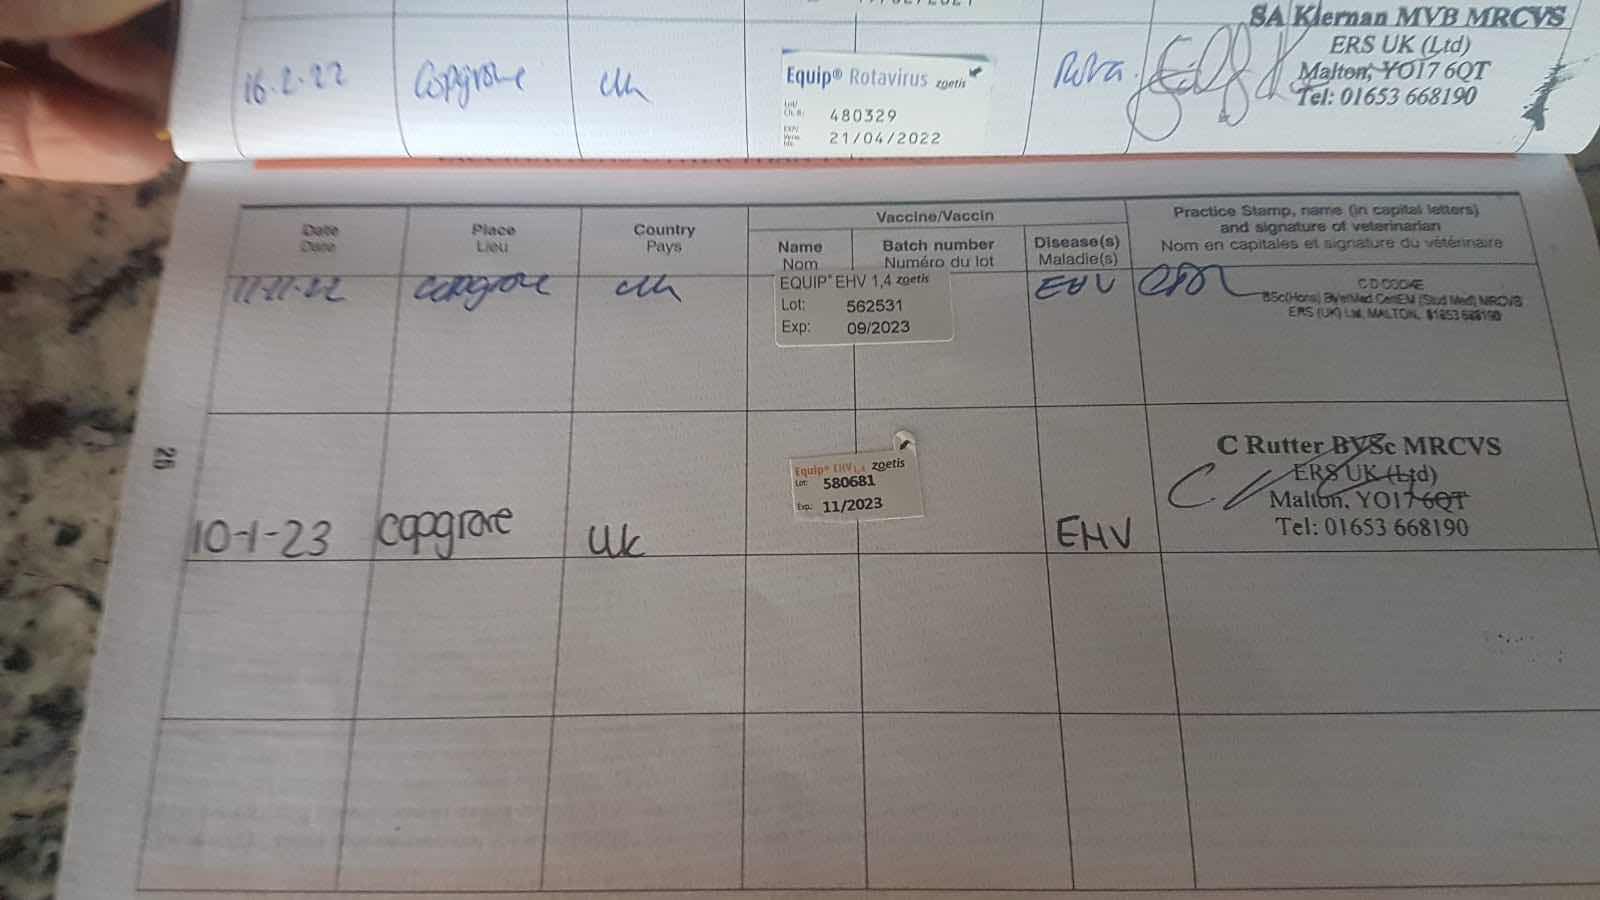 SA Kiernan MVB MRCVS
ERS UK (Ltd)
Malton, YO17 6QT
Tel: 01653 668190
16.2.22 Copgrove UK Equip® Rotavirus zoetis Rota.
480329
21/04/2022
Date Place Country Vaccine/Vaccin Practice Stamp, name (in capital letters)
and signature of veterinarian
Date Lieu Pays Name Batch number Disease(s) Nom en capitales et signature du vétérinaire
Nom Numéro du lot Maladie(s)
11-11-22 Copgrove UK EQUIP® EHV 1,4 zoetis EHV
Lot: 562531
Exp: 09/2023
C D COOKE
BSc(Hons) BVetMed CertEM (Stud Med) MRCVS
ERS (UK) Ltd, MALTON, 01653 668190
25
C Rutter BVSc MRCVS
ERS UK (Ltd)
Malton, YO17 6QT
Tel: 01653 668190
Equip® EHV 1,4 zoetis
Lot: 580681
Exp: 11/2023
10-1-23 Copgrove UK EHV